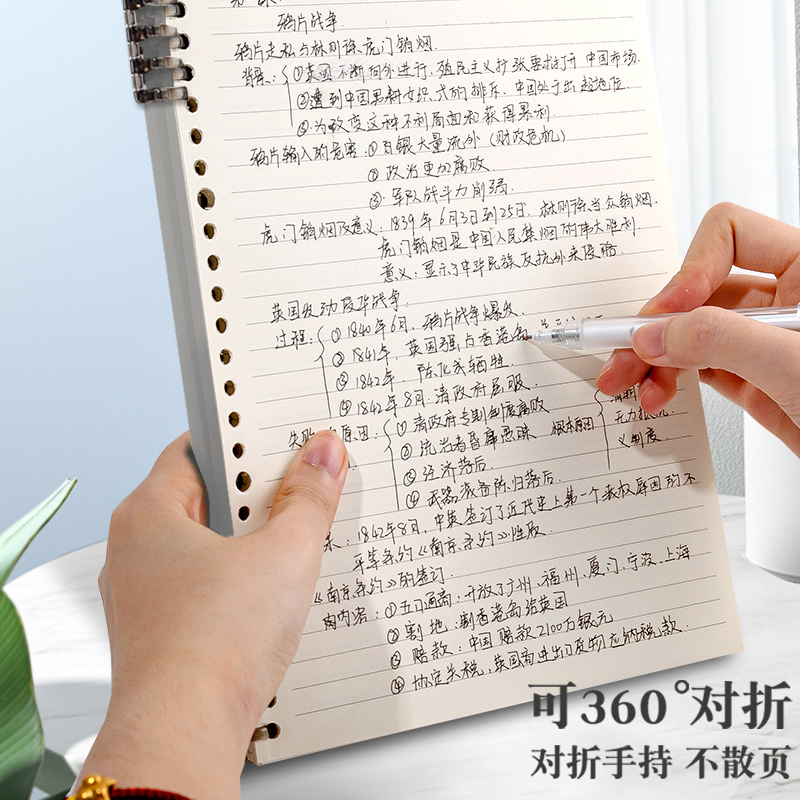 鸦片战争.
鸦片走私与林则徐虎门销烟.
背景: ①英国不断向外进行, 殖民主义扩张要求打开中国市场.
②遭到中国男耕女织式的排斥. 中国处于出超地位.
③为改变这种不利局面和获得暴利
鸦片输入的危害: ①白银大量流外 (财政危机)
② 政治更加腐败.
③ 军队战斗力削弱.
虎门销烟及意义: 1839年6月3日到25日, 林则徐当众销烟.
虎门销烟是中国人民禁烟的伟大胜利.
意义: 显示了中华民族反抗外来侵略
英国发动侵华战争.
过程: ① 1840年6月, 鸦片战争爆发.
② 1841年, 英国强占香港岛
③ 1842年, 陈化成牺牲.
④ 1842年8月. 清政府屈服.
失败 原因: ① 清政府专制制度腐败
② 统治者昏庸愚昧 根本原因
无力抵抗
义制度.
③ 经济落后.
④ 武器装备陈旧落后.
1842年8月, 中英签订了近代史上第一个丧权辱国的不
平等条约《南京条约》
《南京条约》的签订
内容: ①五口通商: 开放了广州、福州、厦门、宁波、上海
② 割地: 割香港岛给英国
③ 赔款: 中国赔款2100万银元
④ 协定关税, 英国商进出口货物应纳税款.
可360°对折
对折手持 不散页